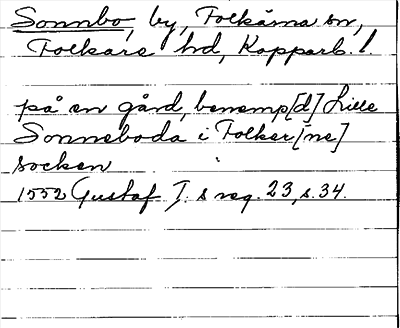 Sonnbo, by, Folkärna sn,
Folkare hd, Kopparb. l.
på en gård, benemp[d] Lille
Sonneboda i Folker[ne]
socken
1552 Gustaf I:s reg. 23, s. 34.